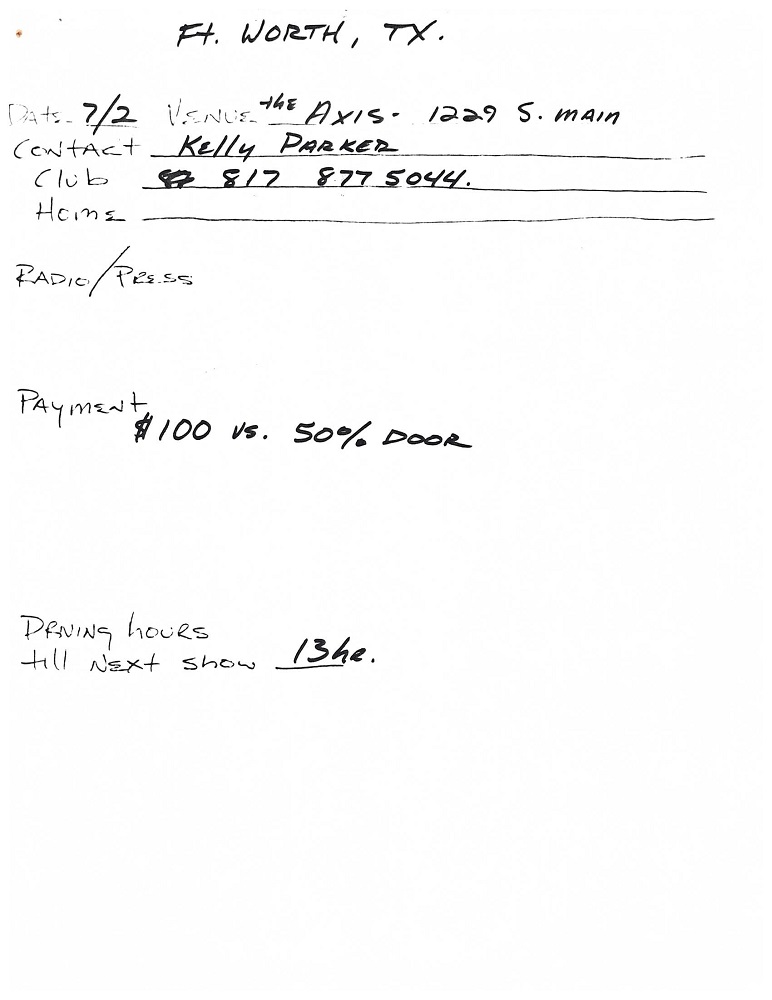 Ft. WORTH, TX.
Date 7/2 VENUE the AXIS - 1229 S. MAIN
CONTACT Kelly PARKER
Club 817 877 5044.
Home
RADIO/PRESS
PAYMENT
$100 vs. 50% DOOR
DRIVING hours
till NEXT show 13hr.